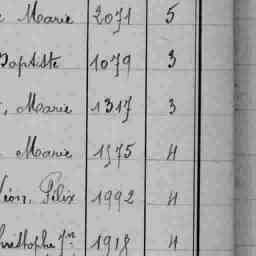 Marie 2071 5
Baptiste 1079 3
, Marie 1317 3
Marie 1575 4
Léon, Félix 1992 4
Christophe Jn 1918 4